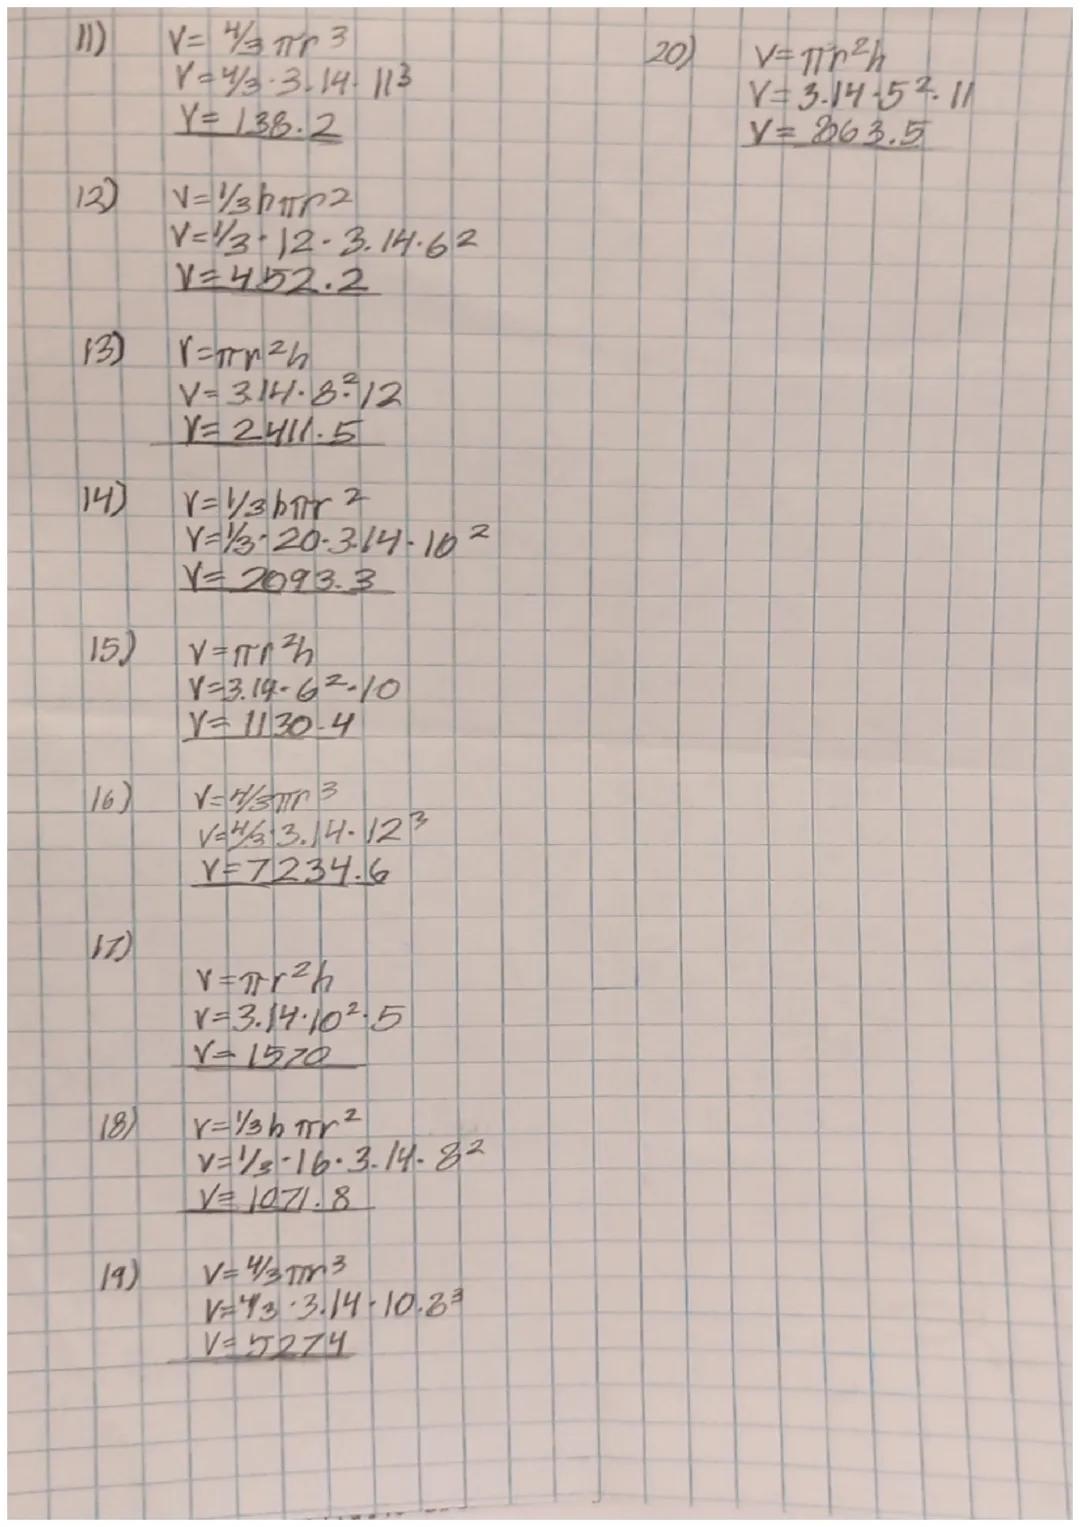 11) V= 4/3 πr³
V=4/3·3.14·11³
V= 138.2
12) V=1/3hπr2
V=1/3·12·3.14·6²
V=452.2
13) V=πr²h
V=3.14·8²·12
V=2411.5
14) V=1/3hπr²
V=1/3·20·3.14·10²
V=2093.3
15) V=πr²h
V=3.14·6²·10
V=1130.4
16) V=4/3πr³
V=4/3·3.14·12³
V=7234.6
17)
V=πr²h
V=3.14·10²·5
V=1570
18) V=1/3hπr²
V=1/3·16·3.14·8²
V=1071.8
19) V=4/3πr³
V=4/3·3.14·10.8³
V=5274
20) V=πr²h
V=3.14·5²·11
V=863.5